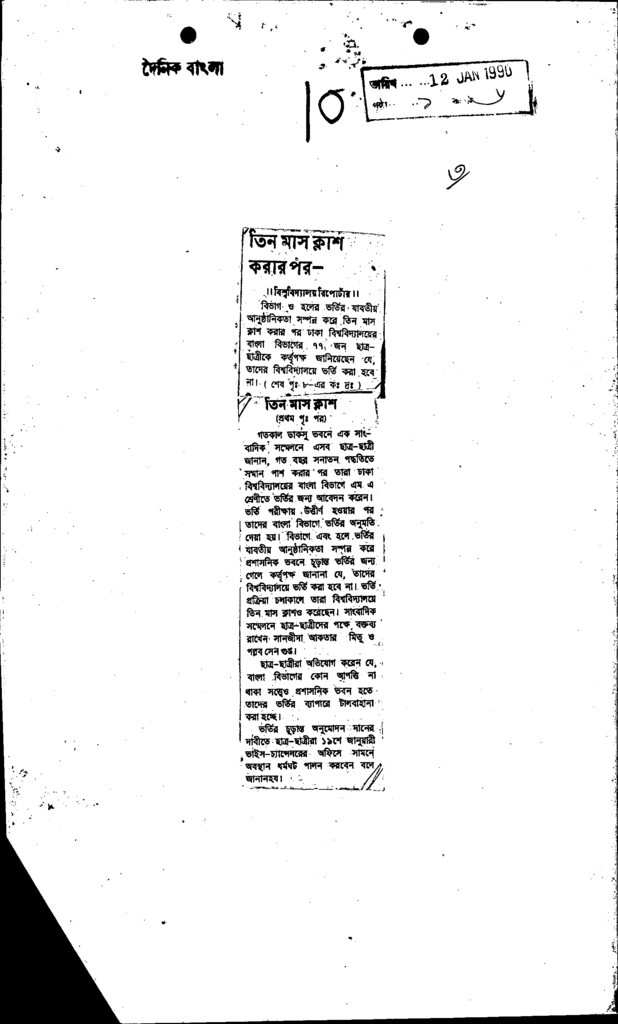 দৈনিক বাংলা
তারিখ ... ...12 JAN 1990
পৃষ্ঠা...
১০
৩
তিন মাস ক্লাশ
করার পর—
।। বিশ্ববিদ্যালয় রিপোর্টার ।।
বিভাগ ও হলের ভর্তির যাবতীয়
আনুষ্ঠানিকতা সম্পন্ন করে তিন মাস
ক্লাশ করার পর ঢাকা বিশ্ববিদ্যালয়ের
বাংলা বিভাগের ৭৭ জন ছাত্র-
ছাত্রীকে কর্তৃপক্ষ জানিয়েছেন যে,
তাদের বিশ্ববিদ্যালয়ে ভর্তি করা হবে
না। (শেষ পৃঃ ৮-এর কঃ দ্রঃ)
তিন মাস ক্লাশ
(প্রথম পৃঃ পর)
গতকাল ডাকসু ভবনে এক সাং-
বাদিক সম্মেলনে এসব ছাত্র-ছাত্রী
জানান, গত বছর সনাতন পদ্ধতিতে
সম্মান পাশ করার পর তারা ঢাকা
বিশ্ববিদ্যালয়ের বাংলা বিভাগে এম এ
শ্রেণীতে ভর্তির জন্য আবেদন করেন।
ভর্তি পরীক্ষায় উত্তীর্ণ হওয়ার পর
তাদের বাংলা বিভাগে ভর্তির অনুমতি
দেয়া হয়। বিভাগে এবং হলে ভর্তির
যাবতীয় আনুষ্ঠানিকতা সম্পন্ন করে
প্রশাসনিক ভবনে চূড়ান্ত ভর্তির জন্য
গেলে কর্তৃপক্ষ জানানা যে, তাদের
বিশ্ববিদ্যালয়ে ভর্তি করা হবে না। ভর্তি
প্রক্রিয়া চলাকালে তারা বিশ্ববিদ্যালয়ে
তিন মাস ক্লাশও করেছেন। সাংবাদিক
সম্মেলনে ছাত্র-ছাত্রীদের পক্ষে বক্তব্য
রাখেন সানজীদা আকতার মিতু ও
পল্লব সেন গুপ্ত।
ছাত্র-ছাত্রীরা অভিযোগ করেন যে,
বাংলা বিভাগের কোন আপত্তি না
থাকা সত্ত্বেও প্রশাসনিক ভবন হতে
তাদের ভর্তির ব্যাপারে টালবাহানা
করা হচ্ছে।
ভর্তির চূড়ান্ত অনুমোদন দানের
দাবীতে ছাত্র-ছাত্রীরা ১৯শে জানুয়ারী
ভাইস-চ্যান্সেলরের অফিসে সামনে
অবস্থান ধর্মঘট পালন করবেন বলে
জানানহয়।